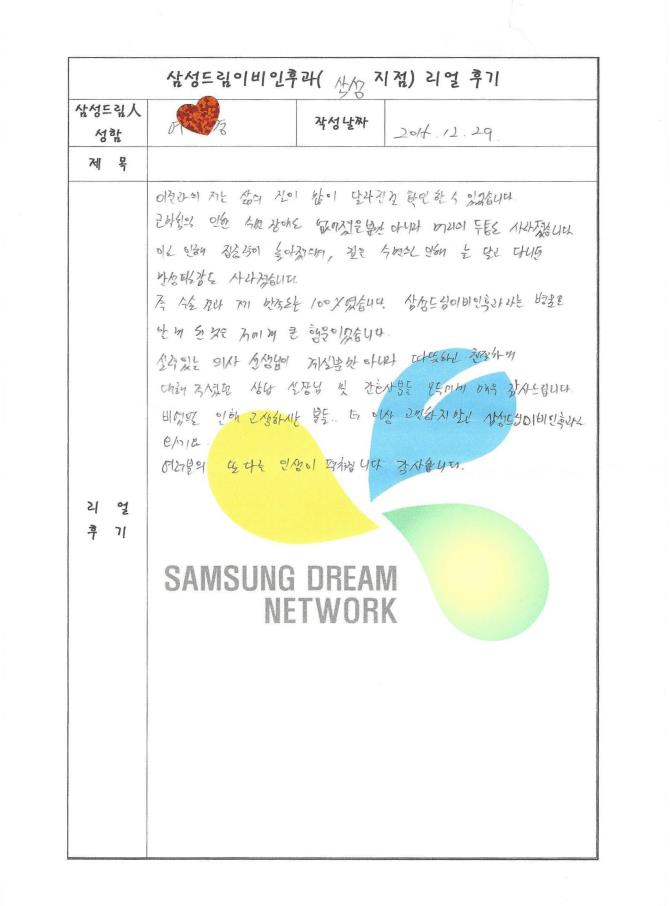 삼성드림이비인후과( 삼성 지점) 리얼 후기
삼성드림人
성함
작성날짜
12.29.
제 목
리 얼
후 기
이전과의 저는 삶의 질이 많이 달라진걸 확인할 수 있었습니다
인한 수면 장애도 없어졌을뿐만 아니라 머리의 두통도 사라졌습니다
인해 집중력이 높아졌으며, 깊은 수면으로 인해 늘 달고 다니던
만성피로감도 사라졌습니다.
즉 수술 결과 제 만족도는 100%였습니다. 삼성드림이비인후과라는 병원으로
안내 된것은 저에게 큰 행운이었습니다.
실력있는 의사 선생님이 계실뿐만 아니라 따뜻하고 친절하게
대해 주셨던 상담 실장님 및 간호사분들 모두에게 매우 감사드립니다
비염으로 인해 고생하시는 분들.. 더 이상 고민하지 말고 삼성드림이비인후과로
오세요.
여러분의 또 다른 인생이 펼쳐집니다 감사합니다.
SAMSUNG DREAM
NETWORK